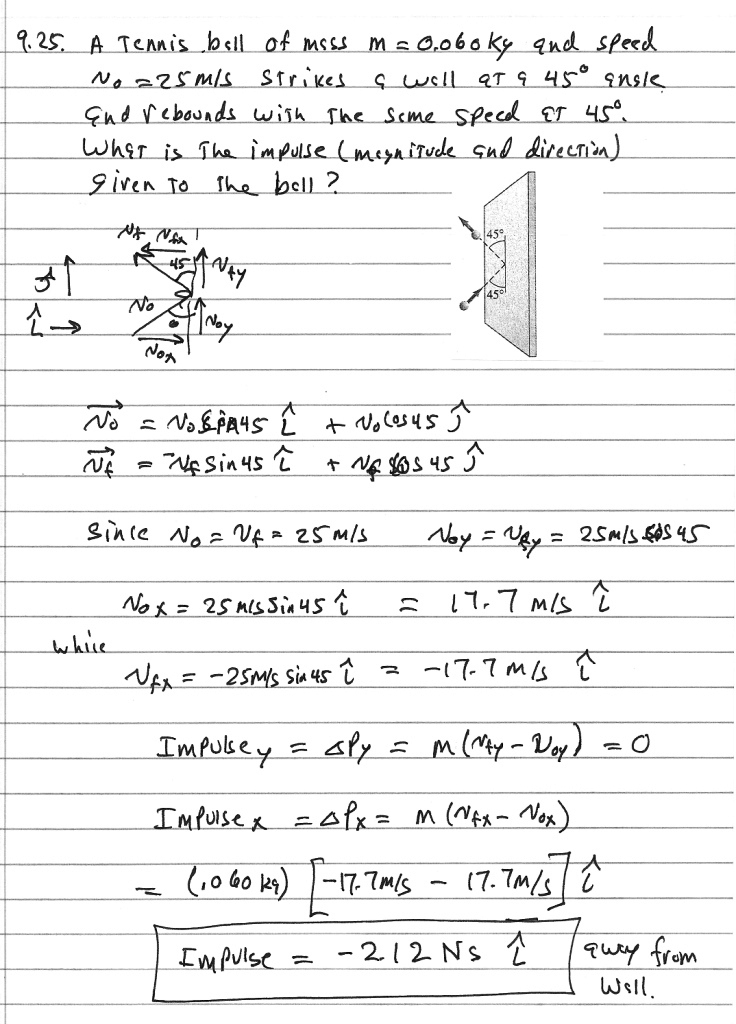 9.25. A Tennis ball of mass m = 0.060 kg and speed
v₀ = 25 m/s strikes a wall at a 45° angle
and rebounds with the same speed at 45°.
What is the impulse (magnitude and direction)
given to the ball?
45°
45°
vf vfx
45 vfy
ĵ
v₀ θ v₀y
î →
v₀x
v₀ = v₀ sin45 î + v₀ cos45 ĵ
vf = -vf sin45 î + vf cos45 ĵ
Since v₀ = vf = 25 m/s v₀y = vfy = 25 m/s cos45
v₀x = 25 m/s sin45 î = 17.7 m/s î
while
vfx = -25 m/s sin45 î = -17.7 m/s î
Impulse y = ΔPy = m(vfy - v₀y) = 0
Impulse x = ΔPx = m(vfx - v₀x)
= (.060 kg) [-17.7 m/s - 17.7 m/s] î
Impulse = -2.12 Ns î away from
wall.